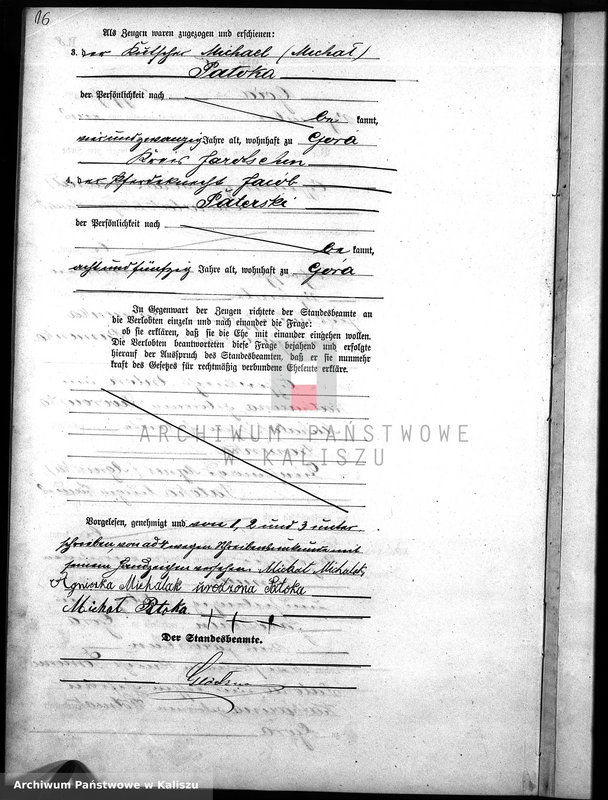 16
Als Zeugen waren zugezogen und erschienen:
3. der Kutscher Michael (Michał)
Patoka
der Persönlichkeit nach
be kannt,
vierundzwanzig Jahre alt, wohnhaft zu Gora
Kreis Jarotschin
4. der Pferdeknecht Jacob
Paterski
der Persönlichkeit nach
be kannt,
achtundfünfzig Jahre alt, wohnhaft zu Góra
In Gegenwart der Zeugen richtete der Standesbeamte an
die Verlobten einzeln und nach einander die Frage:
ob sie erklären, daß sie die Ehe mit einander eingehen wollen.
Die Verlobten beantworteten diese Frage bejahend und erfolgte
hierauf der Ausspruch des Standesbeamten, daß er sie nunmehr
kraft des Gesetzes für rechtmäßig verbundene Eheleute erkläre.
ARCHIWUM PAŃSTWOWE
W KALISZU
Vorgelesen, genehmigt und von 1, 2 und 3 unter
schrieben, von ad 4 wegen Schreibensunkunde mit
seinem Handzeichen versehen. Michał Michalak
Agnieszka Michalak urodzona Patoka
Michał Patoka +++
Der Standesbeamte.
Archiwum Państwowe w Kaliszu